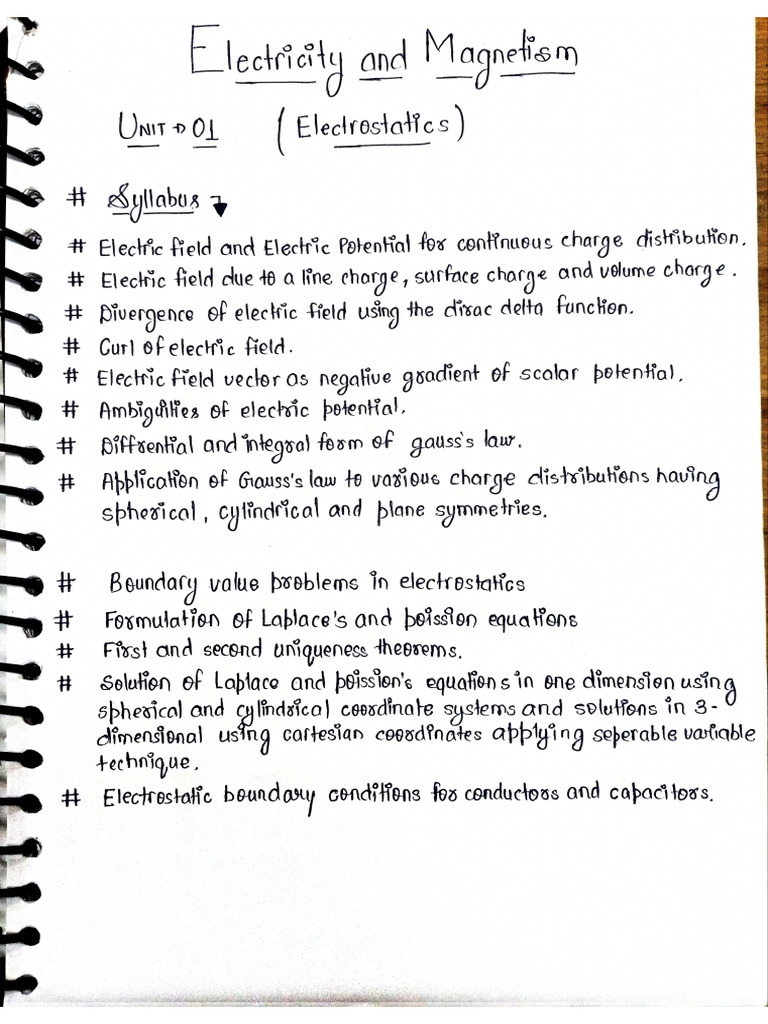 Electricity and Magnetism
Unit → 01 (Electrostatics)
# Syllabus
# Electric field and Electric Potential for continuous charge distribution.
# Electric field due to a line charge, surface charge and volume charge.
# Divergence of electric field using the dirac delta function.
# Curl of electric field.
# Electric field vector as negative gradient of scalar potential.
# Ambiguities of electric potential.
# Diffrential and integral form of gauss's law.
# Application of Gauss's law to various charge distributions having
spherical, cylindrical and plane symmetries.
# Boundary value problems in electrostatics
# Formulation of Laplace's and poission equations
# First and second uniqueness theorems.
# Solution of Laplace and poission's equations in one dimension using
spherical and cylindrical coordinate systems and solutions in 3-
dimensional using cartesian coordinates applying seperable variable
technique.
# Electrostatic boundary conditions for conductors and capacitors.